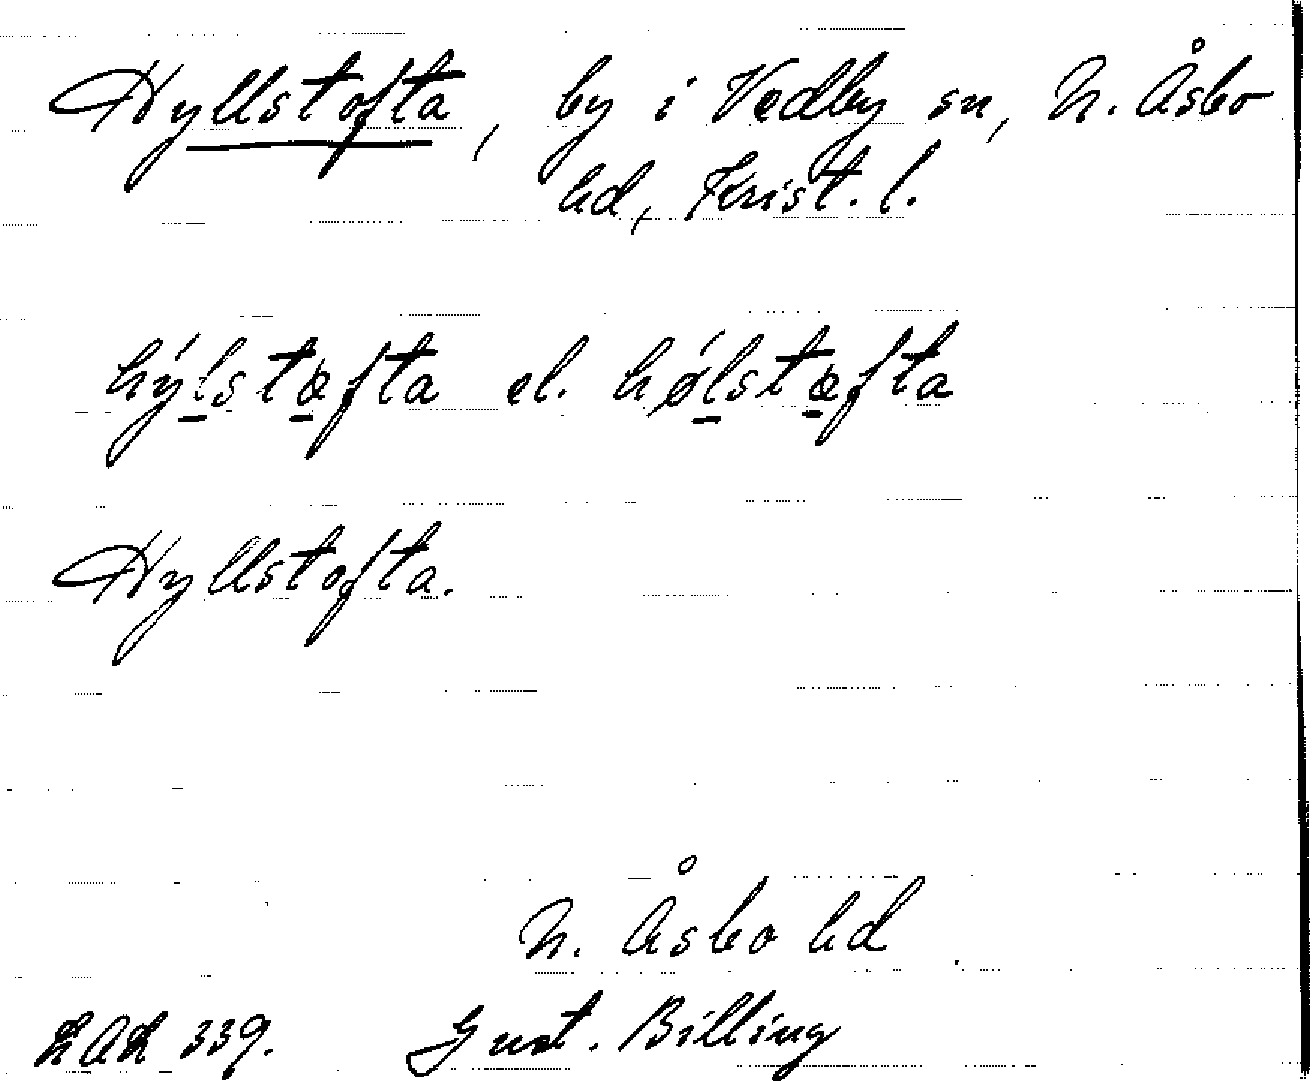 Hyllstofta, by i Vedby sn, N. Åsbo
hd, Krist. l.
hýlstæfta el. hǿlstæfta
Hyllstofta.
N. Åsbo hd
LAL 339. Gust. Billing